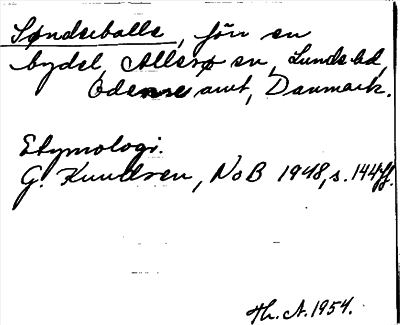 Søndeballe, förr en
bydel, Allesø sn, Lunds hd,
Odense amt, Danmark.
Etymologi.
G. Knudsen, NoB 1948, s. 144 ff.
Th. A. 1954.